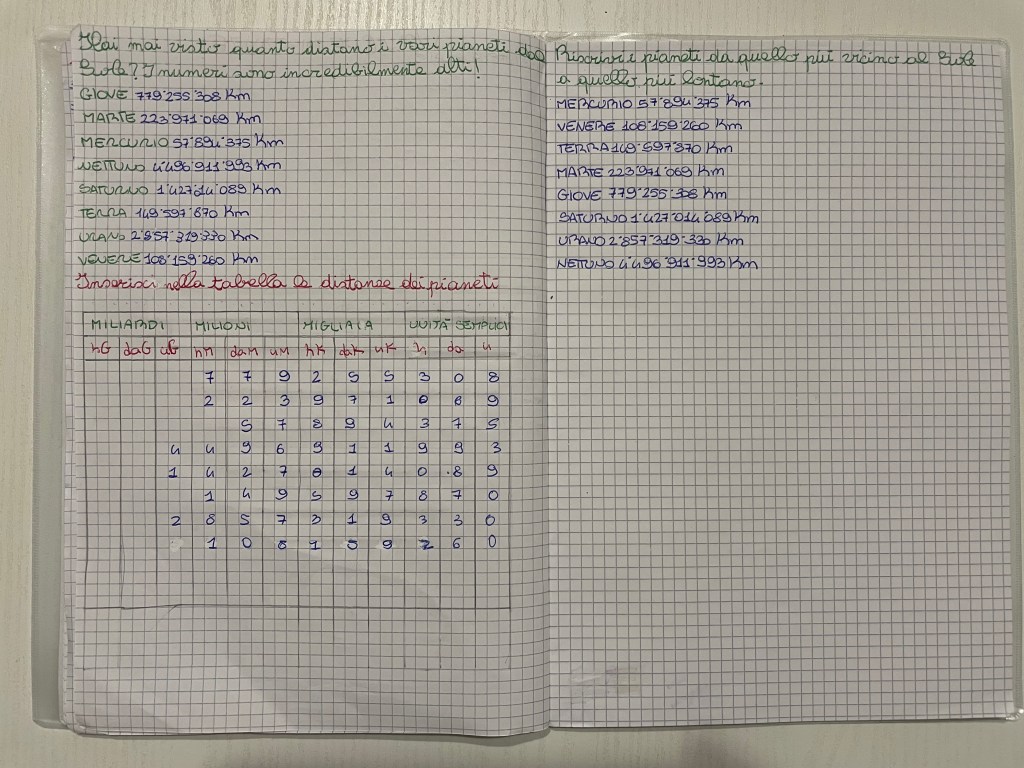 Hai mai visto quanto distano i vari pianeti dal
Sole? I numeri sono incredibilmente alti!
GIOVE 779˙255˙308 Km
MARTE 223˙971˙069 Km
MERCURIO 57˙894˙375 Km
NETTUNO 4˙496˙911˙993 Km
SATURNO 1˙427˙014˙089 Km
TERRA 149˙597˙870 Km
URANO 2˙857˙319˙330 Km
VENERE 108˙159˙260 Km
Inserisci nella tabella le distanze dei pianeti
MILIARDI MILIONI MIGLIAIA UNITÀ SEMPLICI
hG daG uG hM daM uM hK daK uK h da u
7 7 9 2 5 5 3 0 8
2 2 3 9 7 1 0 6 9
5 7 8 9 4 3 7 5
4 4 9 6 9 1 1 9 9 3
1 4 2 7 0 1 4 0 8 9
1 4 9 5 9 7 8 7 0
2 8 5 7 3 1 9 3 3 0
1 0 8 1 5 9 2 6 0
Riscrivi i pianeti da quello più vicino al Sole
a quello più lontano.
MERCURIO 57˙894˙375 Km
VENERE 108˙159˙260 Km
TERRA 149˙597˙870 Km
MARTE 223˙971˙069 Km
GIOVE 779˙255˙308 Km
SATURNO 1˙427˙014˙089 Km
URANO 2˙857˙319˙330 Km
NETTUNO 4˙496˙911˙993 Km